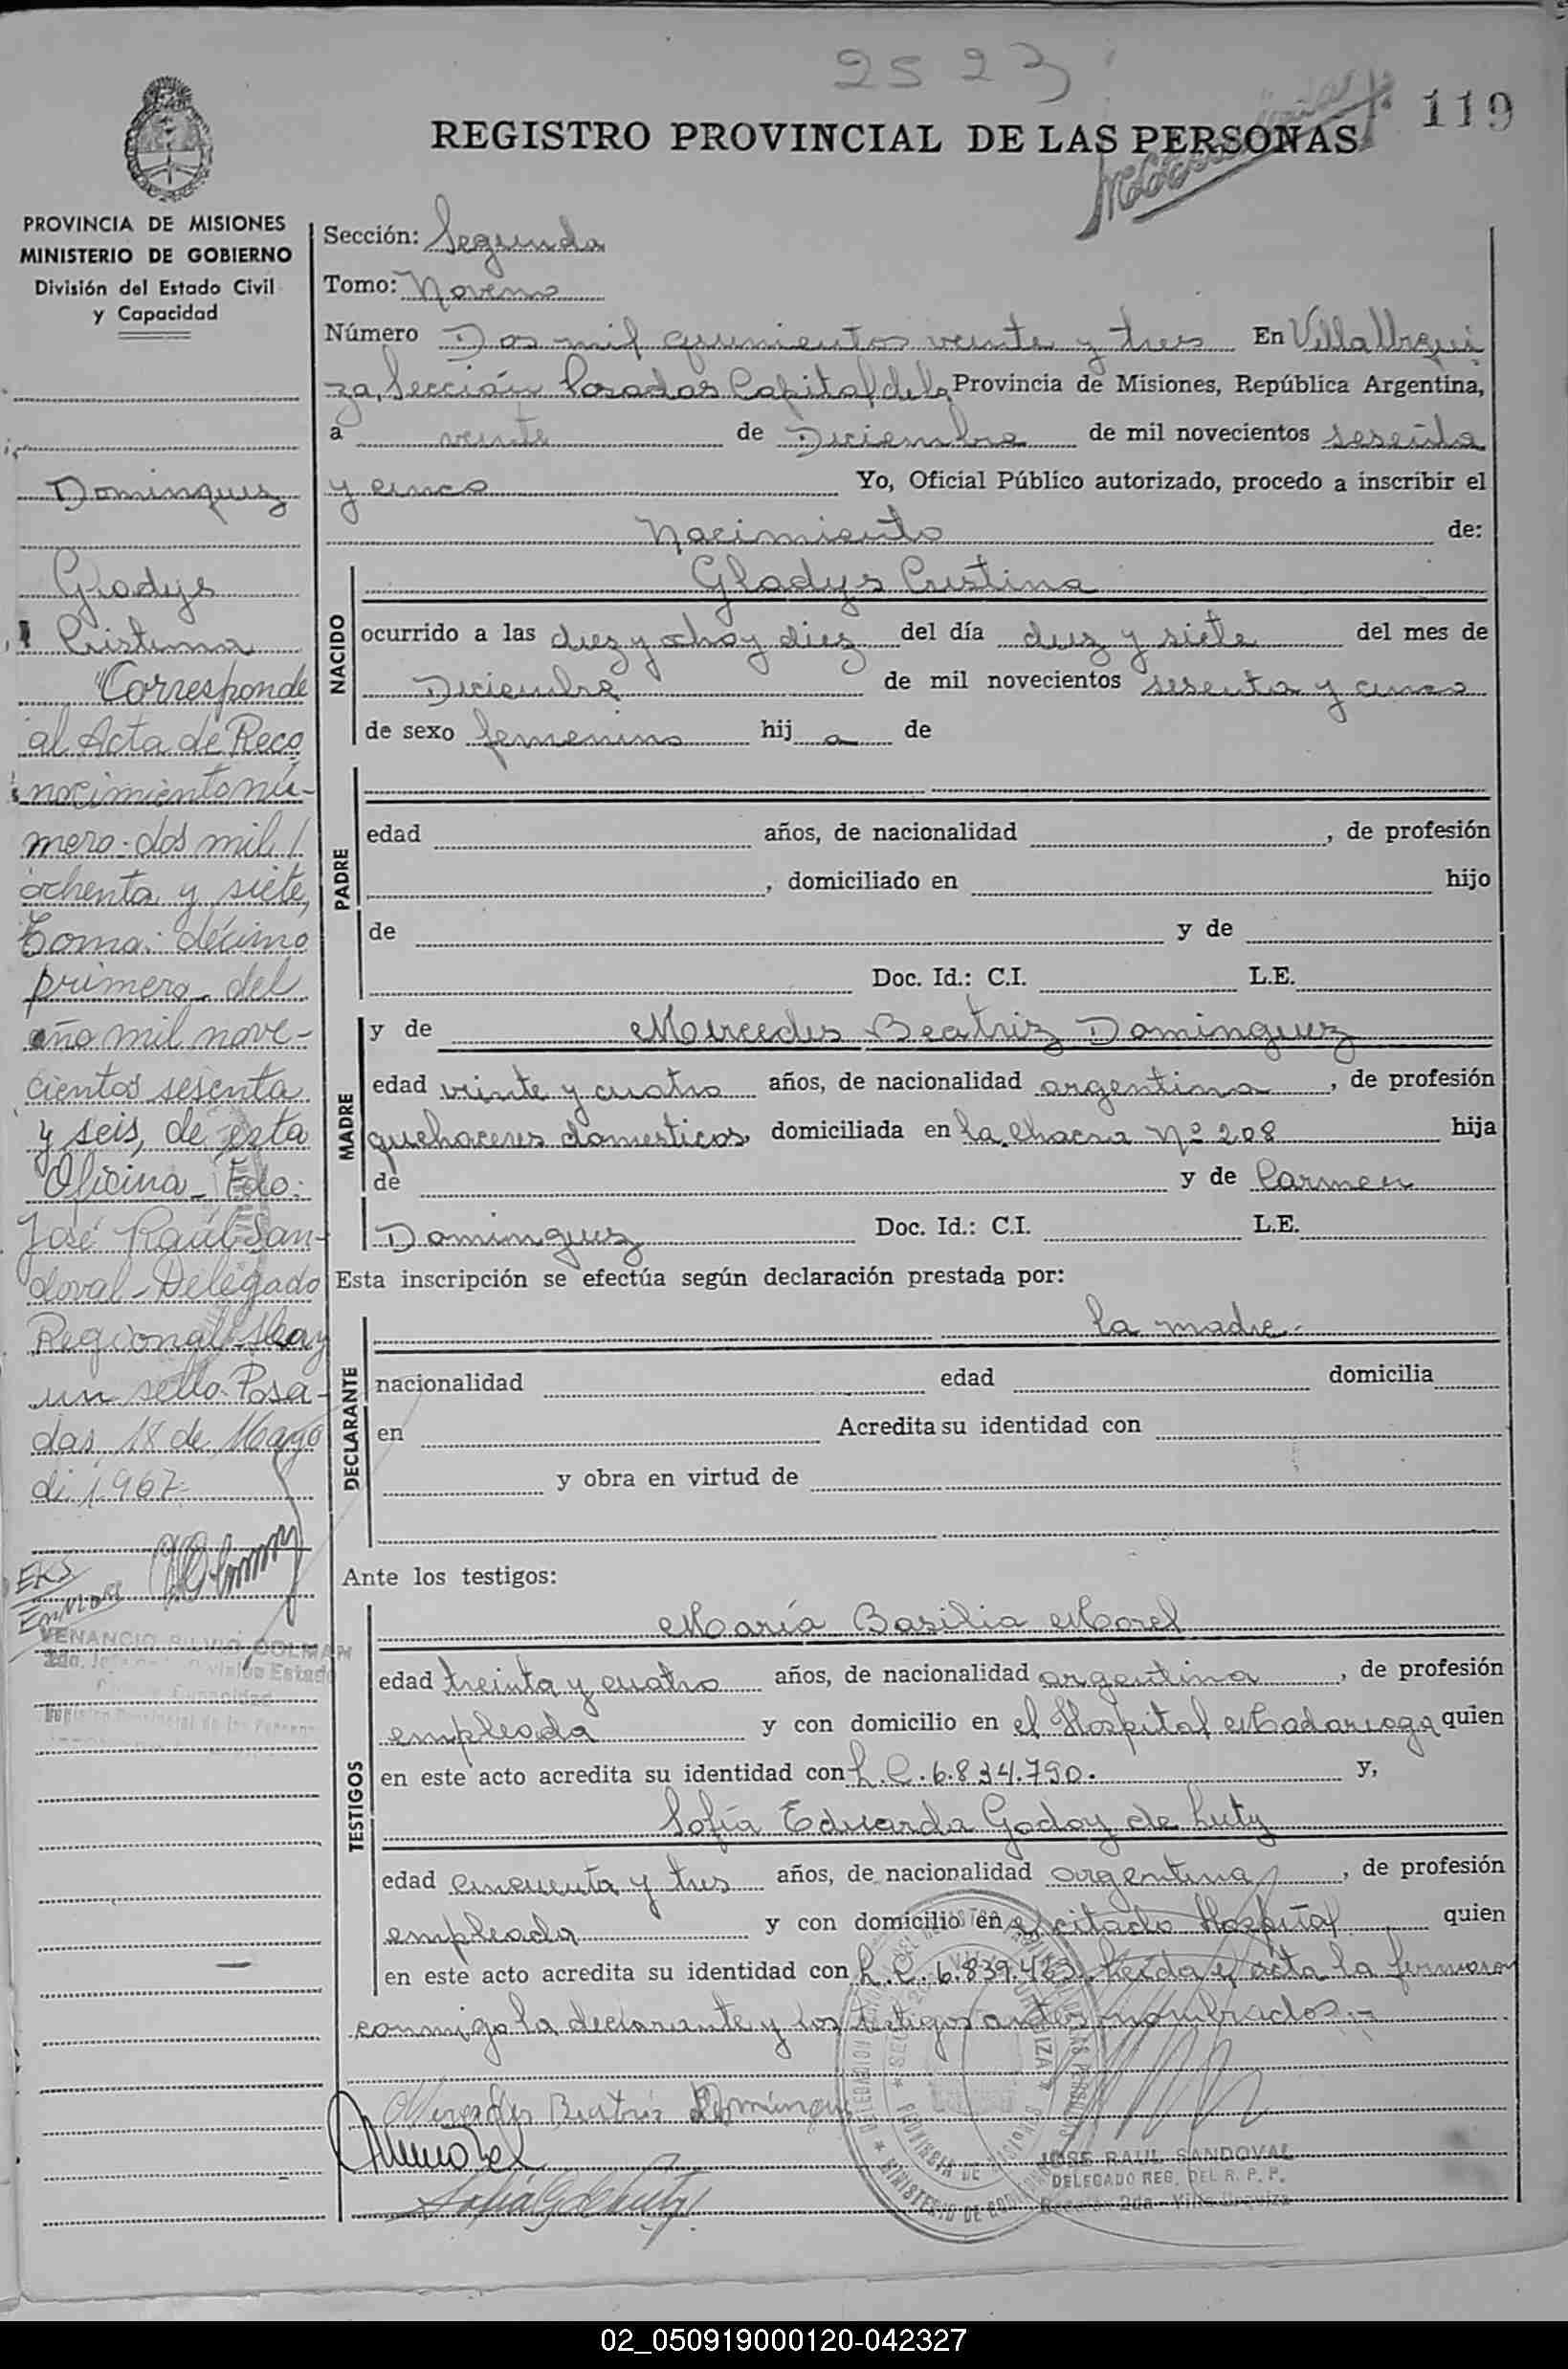 2523
119
REGISTRO PROVINCIAL DE LAS PERSONAS
PROVINCIA DE MISIONES
MINISTERIO DE GOBIERNO
División del Estado Civil
y Capacidad
Dominguez
Gladys
Cristina
"Corresponde
al Acta de Reco
nocimiento nú-
mero: dos mil /
ochenta y siete,
Tomo: décimo
primero del
año mil nove-
cientos sesenta
y seis, de esta
Oficina_ Fdo:
José Raúl San-
doval_Delegado
Regional_Hay
un sello. Posa-
das, 18 de Mayo
de 1.967-
VENANCIO SILVIO COLMAN
Sección: Segunda
Tomo: Noveno
Número Dos mil quinientos veinte y tres En Villa Urqui
za, Sección Posadas Capital de la Provincia de Misiones, República Argentina,
a veinte de Diciembre de mil novecientos sesenta
y cinco Yo, Oficial Público autorizado, procedo a inscribir el
Nacimiento de:
NACIDO
Gladys Cristina
ocurrido a las diez y ocho y diez del día diez y siete del mes de
Diciembre de mil novecientos sesenta y cinco
de sexo femenino hij a de
PADRE
edad años, de nacionalidad , de profesión
, domiciliado en hijo
de y de
Doc. Id.: C.I. L.E.
MADRE
y de Mercedes Beatriz Dominguez
edad veinte y cuatro años, de nacionalidad argentina , de profesión
quehaceres domesticos, domiciliada en la Chacra Nº 208 hija
de y de Carmen
Dominguez Doc. Id.: C.I. L.E.
Esta inscripción se efectúa según declaración prestada por:
DECLARANTE
la madre.-
nacionalidad edad domicilia
en Acredita su identidad con
y obra en virtud de
Ante los testigos:
TESTIGOS
María Basilia Morel
edad treinta y cuatro años, de nacionalidad argentina , de profesión
empleada y con domicilio en el Hospital Madariaga quien
en este acto acredita su identidad con L.C. 6.834.790. y,
Sofía Eduarda Godoy de Luty
edad cincuenta y tres años, de nacionalidad argentina , de profesión
empleada y con domicilio en el citado Hospital quien
en este acto acredita su identidad con L.C. 6.839.423. Leída el acta la firmaron
conmigo la declarante y los testigos antes nombrados.-
Mercedes Beatriz Domínguez
JOSE RAUL SANDOVAL
DELEGADO REG. DEL R. P. P.
Sección 2da - Villa Urquiza
02_050919000120-042327